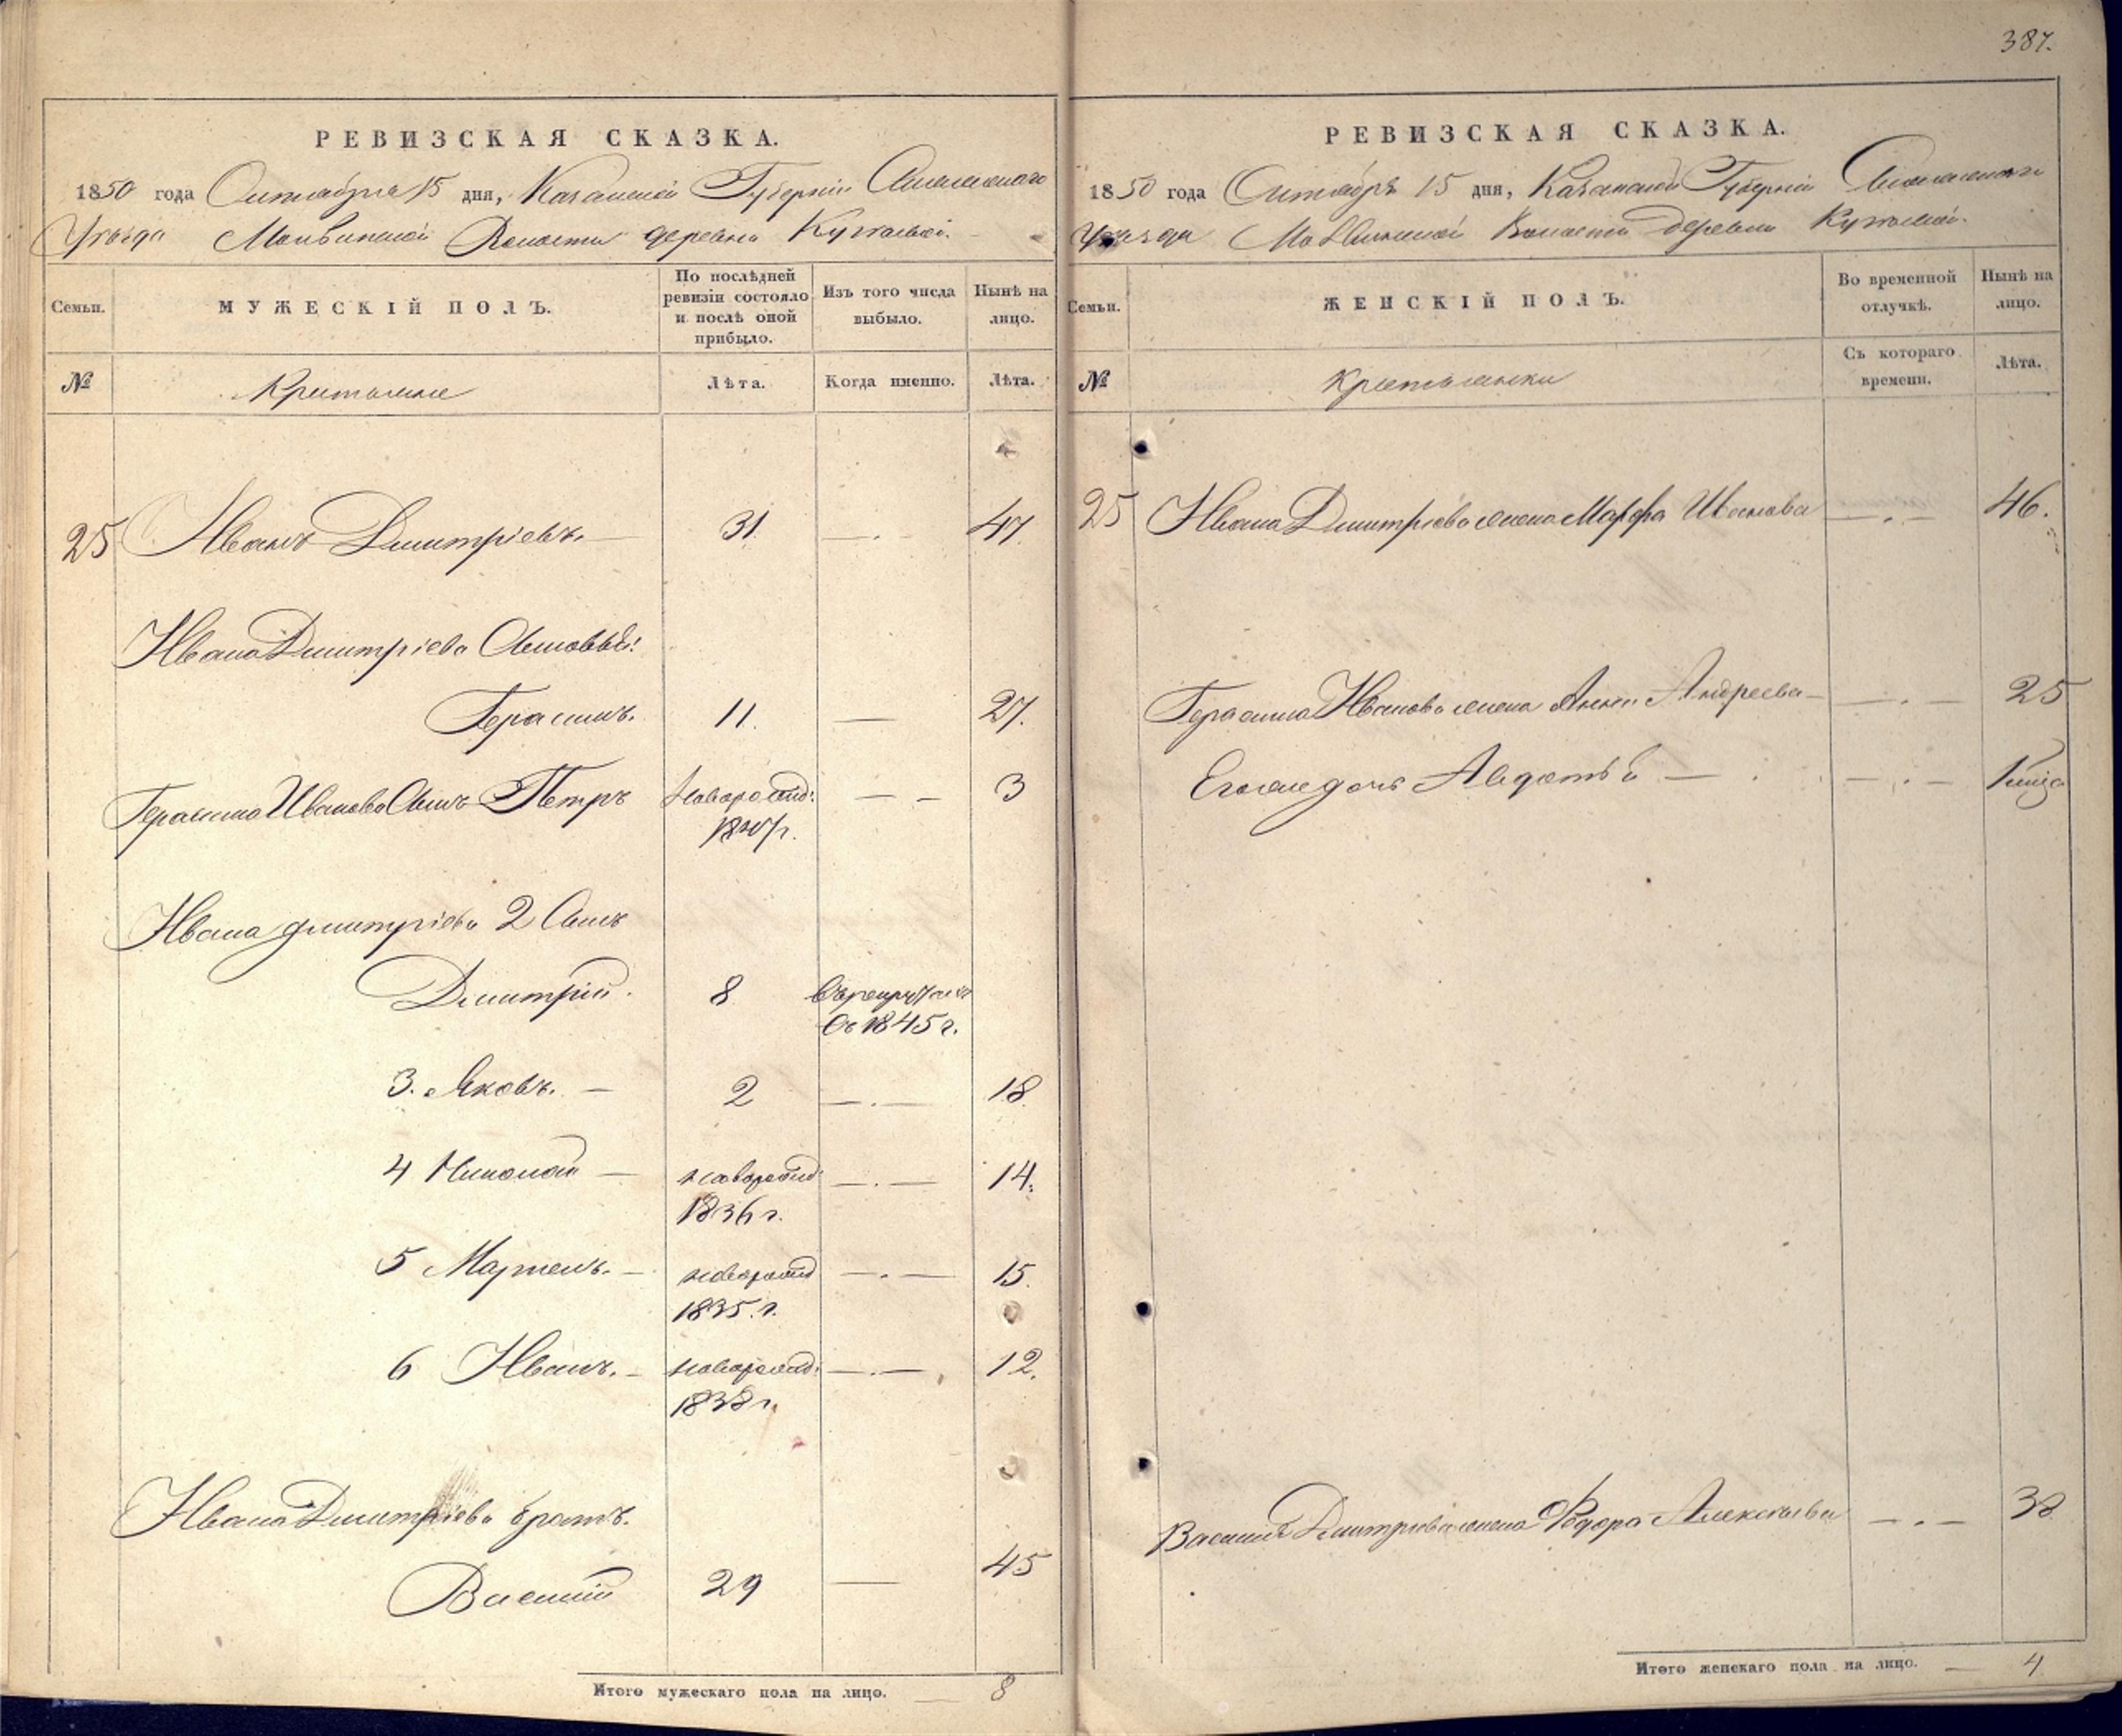 387.
РЕВИЗСКАЯ СКАЗКА.
1850 года Октября 15 дня, Казанской Губернии
Уезда Волости деревни
Семьи.
МУЖЕСКІЙ ПОЛЪ.
По послѣдней
ревизіи состояло
и послѣ оной
прибыло.
Изъ того числа
выбыло.
Нынѣ на
лицо.
№
Крестьяне
Лѣта.
Когда именно.
Лѣта.
25 Иванъ Дмитріевъ. — 31. —.— 47.
Ивана Дмитріева Сыновья:
Герасимъ. 11. — 27.
Герасима Иванова Сынъ Петръ новорожд: — — 3
1847 г.
Ивана Дмитріева 2 Сынъ
Дмитрій. 8. въ рекрутахъ
съ 1845 г.
3. Яковъ. — 2 —.— 18
4 Николай — новорожд —.— 14.
1836 г.
5 — новорожд —.— 15.
1835. г.
6 Иванъ. — новорожд: —.— 12.
1838 г.
Ивана Дмитріева братъ.
Василій 29 — 45
Итого мужескаго пола на лицо. — 8
РЕВИЗСКАЯ СКАЗКА.
1850 года Октября 15 дня, Казанской Губерніи
Уезда Волости деревни
Семьи.
ЖЕНСКІЙ ПОЛЪ.
Во временной
отлучкѣ.
Нынѣ на
лицо.
№
Крестьянки
Съ котораго
времени.
Лѣта.
25 Ивана Дмитріева жена Марфа Иванова —.— 46.
Герасима Иванова жена Анна Андреева — —.— 25
Его же дочь Авдотья — —.—
Василія Дмитріева жена Федора Алексѣева —.— 38
Итого женскаго пола на лицо. — 4